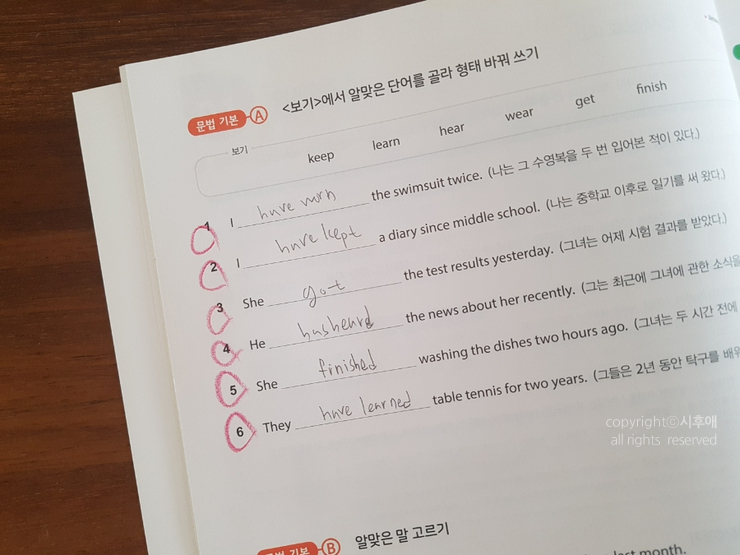 문법 기본 A <보기>에서 알맞은 단어를 골라 형태 바꿔 쓰기
보기
keep learn hear wear get finish
1 I have worn the swimsuit twice. (나는 그 수영복을 두 번 입어본 적이 있다.)
2 I have kept a diary since middle school. (나는 중학교 이후로 일기를 써 왔다.)
3 She got the test results yesterday. (그녀는 어제 시험 결과를 받았다.)
4 He has heard the news about her recently. (그는 최근에 그녀에 관한 소식을
5 She finished washing the dishes two hours ago. (그녀는 두 시간 전에
6 They have learned table tennis for two years. (그들은 2년 동안 탁구를 배워
copyrightⓒ시후애
all rights reserved
문법 기본 B 알맞은 말 고르기
last month.